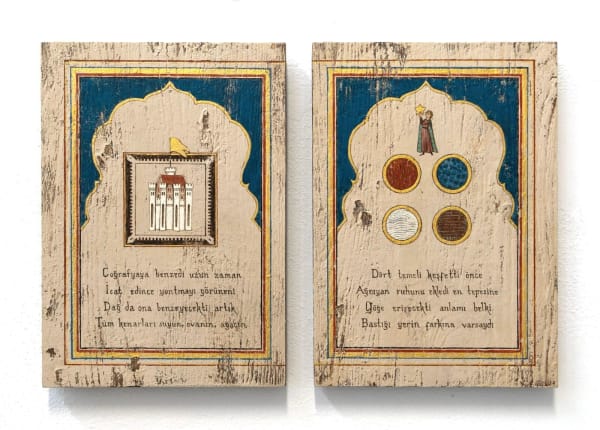 Coğrafyaya benzerdi uzun zaman
İcat edince yontmayı görüneni
Dağ da ona benzeyecekti artık
Tüm kenarları suyun, ovanın, ağacın
Dört temeli keşfetti önce
Ağmıyan ruhunu ekledi en tepesine
Göğe erişecekti anlamı belki
Bastığı yerin farkına varsaydı